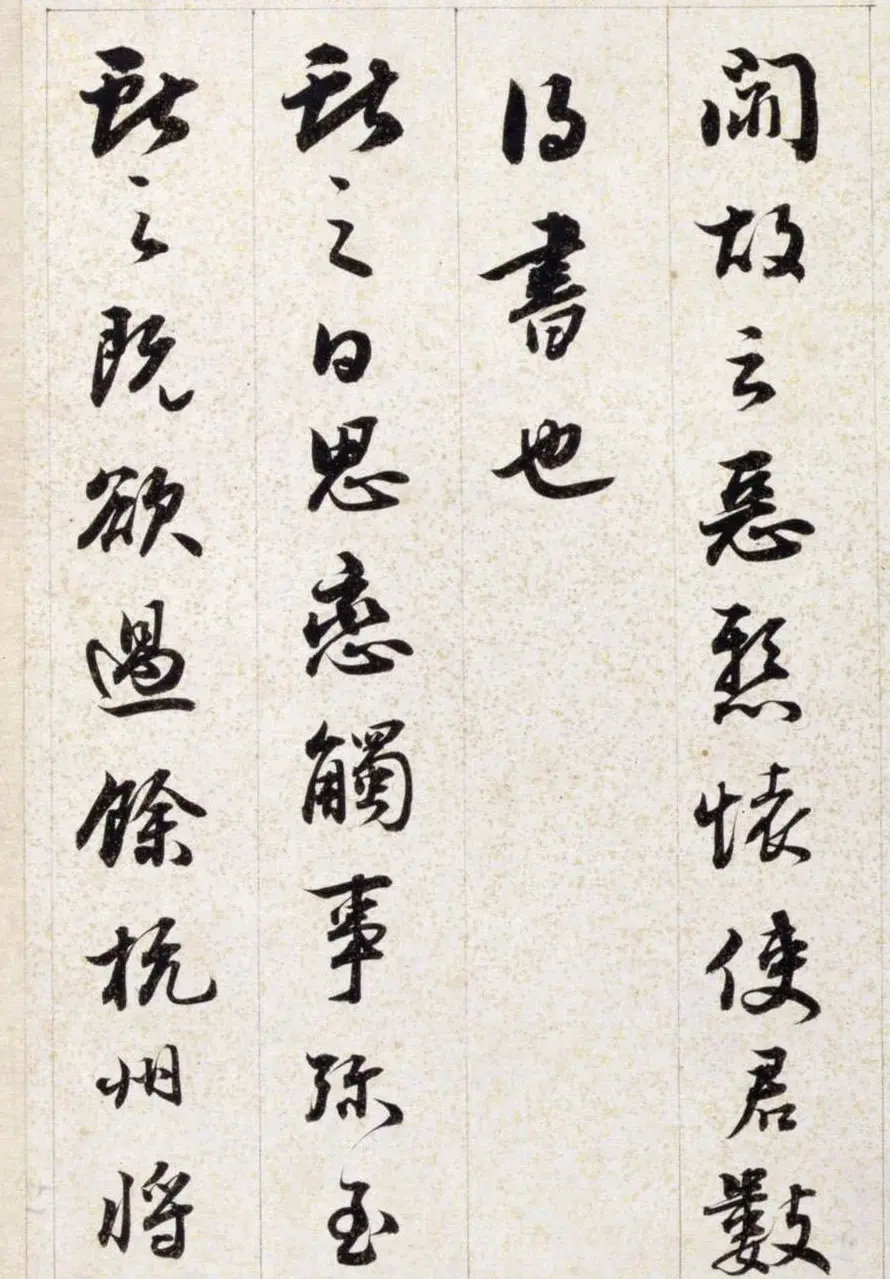 故云惡懸懷使君數
得書也
獻之日思戀觸事弥至
獻之既欲過餘杭州將